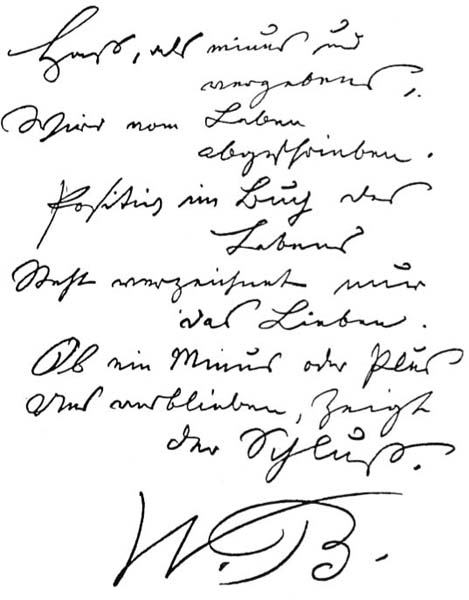 Haß, als minus und
vergebens,
Wird vom Leben
abgeschrieben.
Positiv im Buch des
Lebens
Steht verzeichnet nur
das Lieben.
Ob ein Minus oder Plus
Uns verblieben, zeigt
der Schluß.
W. B.